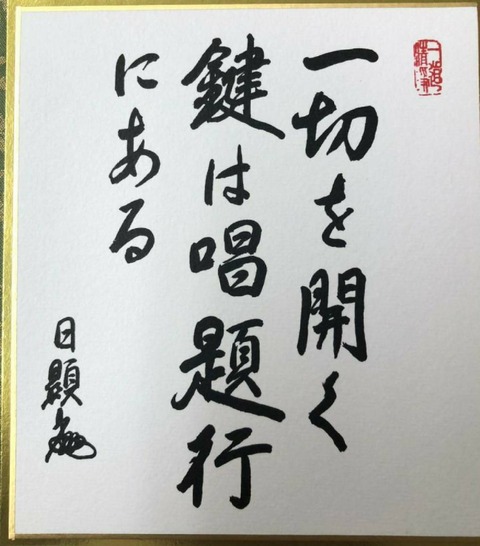 一切を開く
鍵は唱題行
にある
日顕